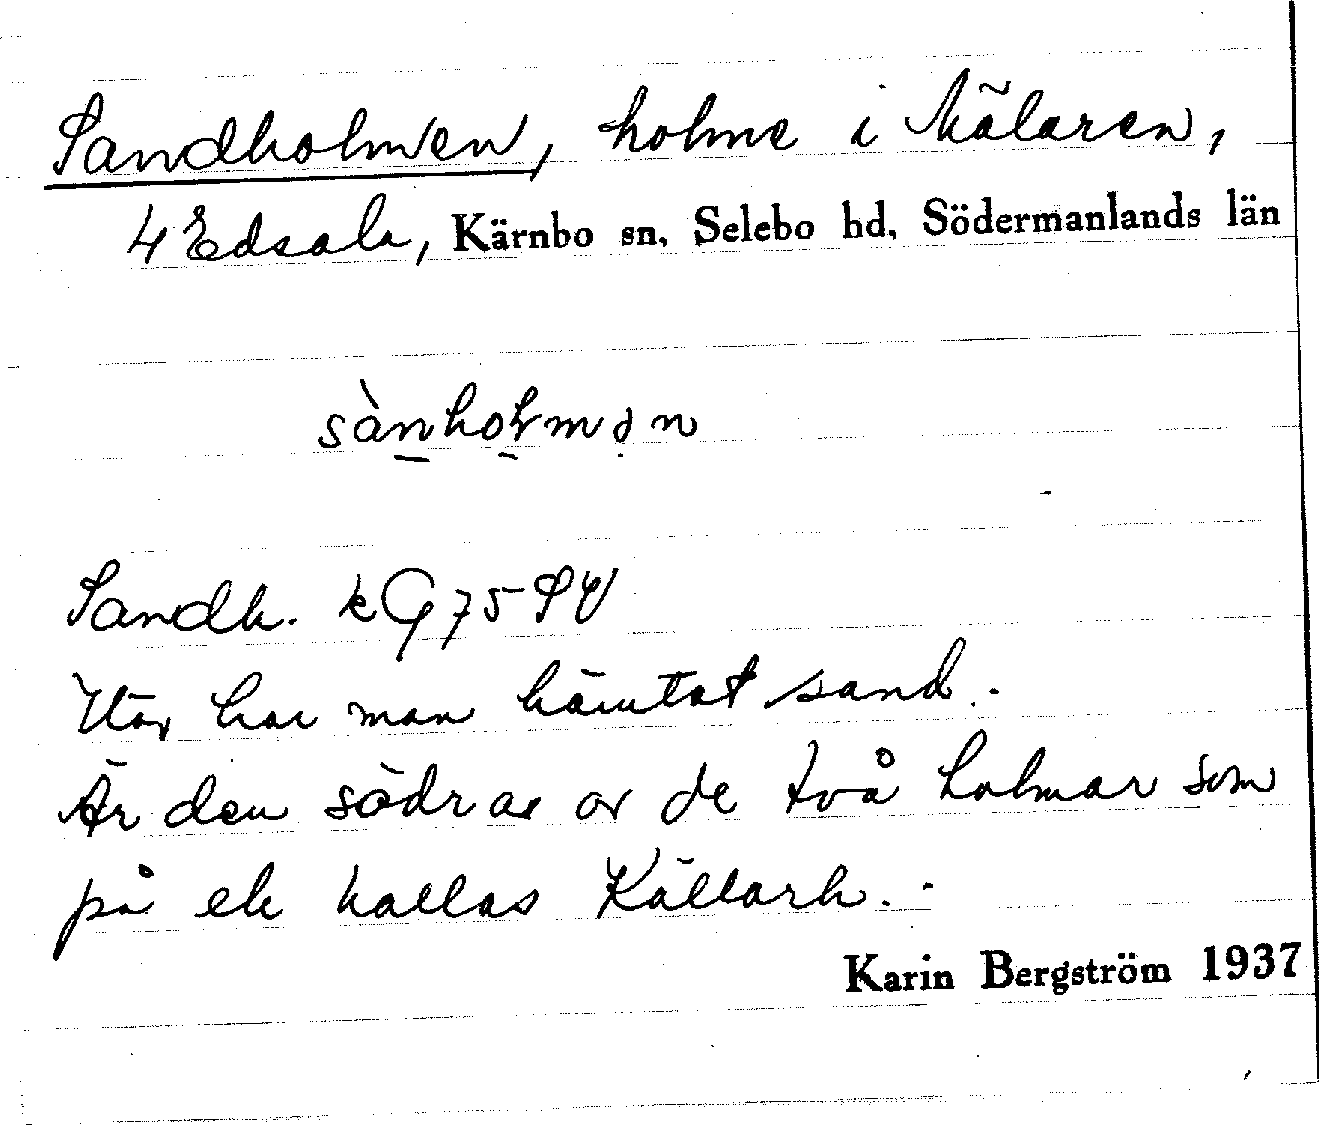 Sandholmen, holme i Mälaren,
4 Edsala, Kärnbo sn, Selebo hd, Södermanlands län
sànholmən
Sandh. kG 75 SV
Här har man hämtat sand.
Är den södra av de två holmar som
på ek kallas Källarh.
Karin Bergström 1937